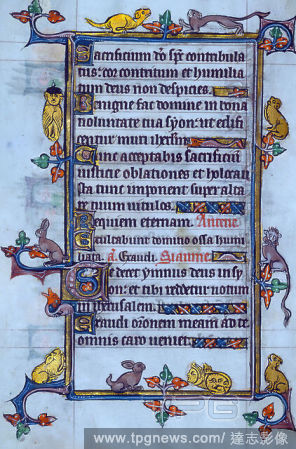 Sacrificium deo spc contribula
tus: cor contritum et humilia
tum deus non despicies.
Benigne fac domine in bona
voluntate tua syon: ut edifi
centur muri iherlm.
Tunc acceptabis sacrificiū
iusticie oblationes et holocau
sta tunc imponent super alta
re tuum vitulos.
Requiem eternam. Añ
Exultabunt domino ossa humi
liata. a. Exaudi. Psalmus
Te decet ymnus deus in sy
on: et tibi reddetur votum
in iherusalem.
Exaudi orōnem meam ad te
omnis caro veniet.
www.tpgnews.com / 達志影像